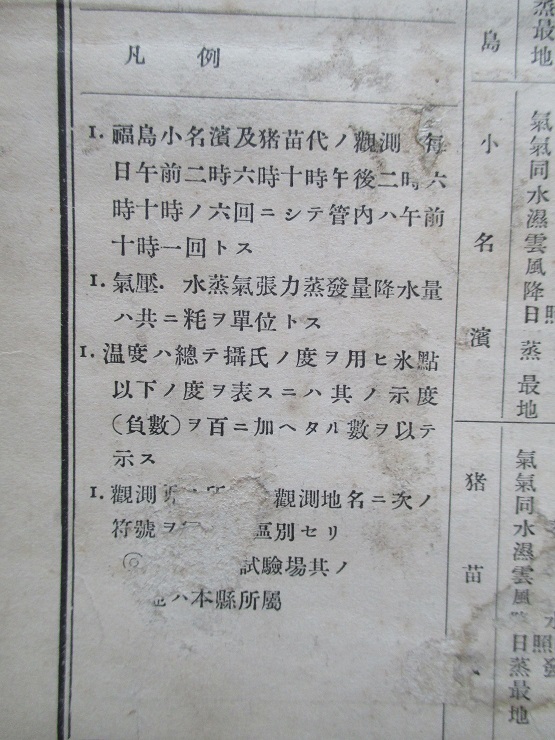 凡例
1. 福島小名濱及猪苗代ノ觀測 每
日午前二時六時十時午後二時六
時十時ノ六回ニシテ管内ハ午前
十時一回トス
1. 氣壓. 水蒸氣張力蒸發量降水量
ハ共ニ粍ヲ單位トス
1. 温度ハ總テ攝氏ノ度ヲ用ヒ氷點
以下ノ度ヲ表スニハ其ノ示度
(負數)ヲ百ニ加ヘタル數ヲ以テ
示ス
1. 觀測 所 觀測地名ニ次ノ
符號ヲ 區別セリ
◎ 試驗場其ノ
ハ本縣所屬
島
小名濱
猪苗
蒸
最
地
氣
氣
同
水
濕
雲
風
降
日照
蒸
最
地
氣
氣
同
水
濕
雲
風
日照
蒸發
最
地